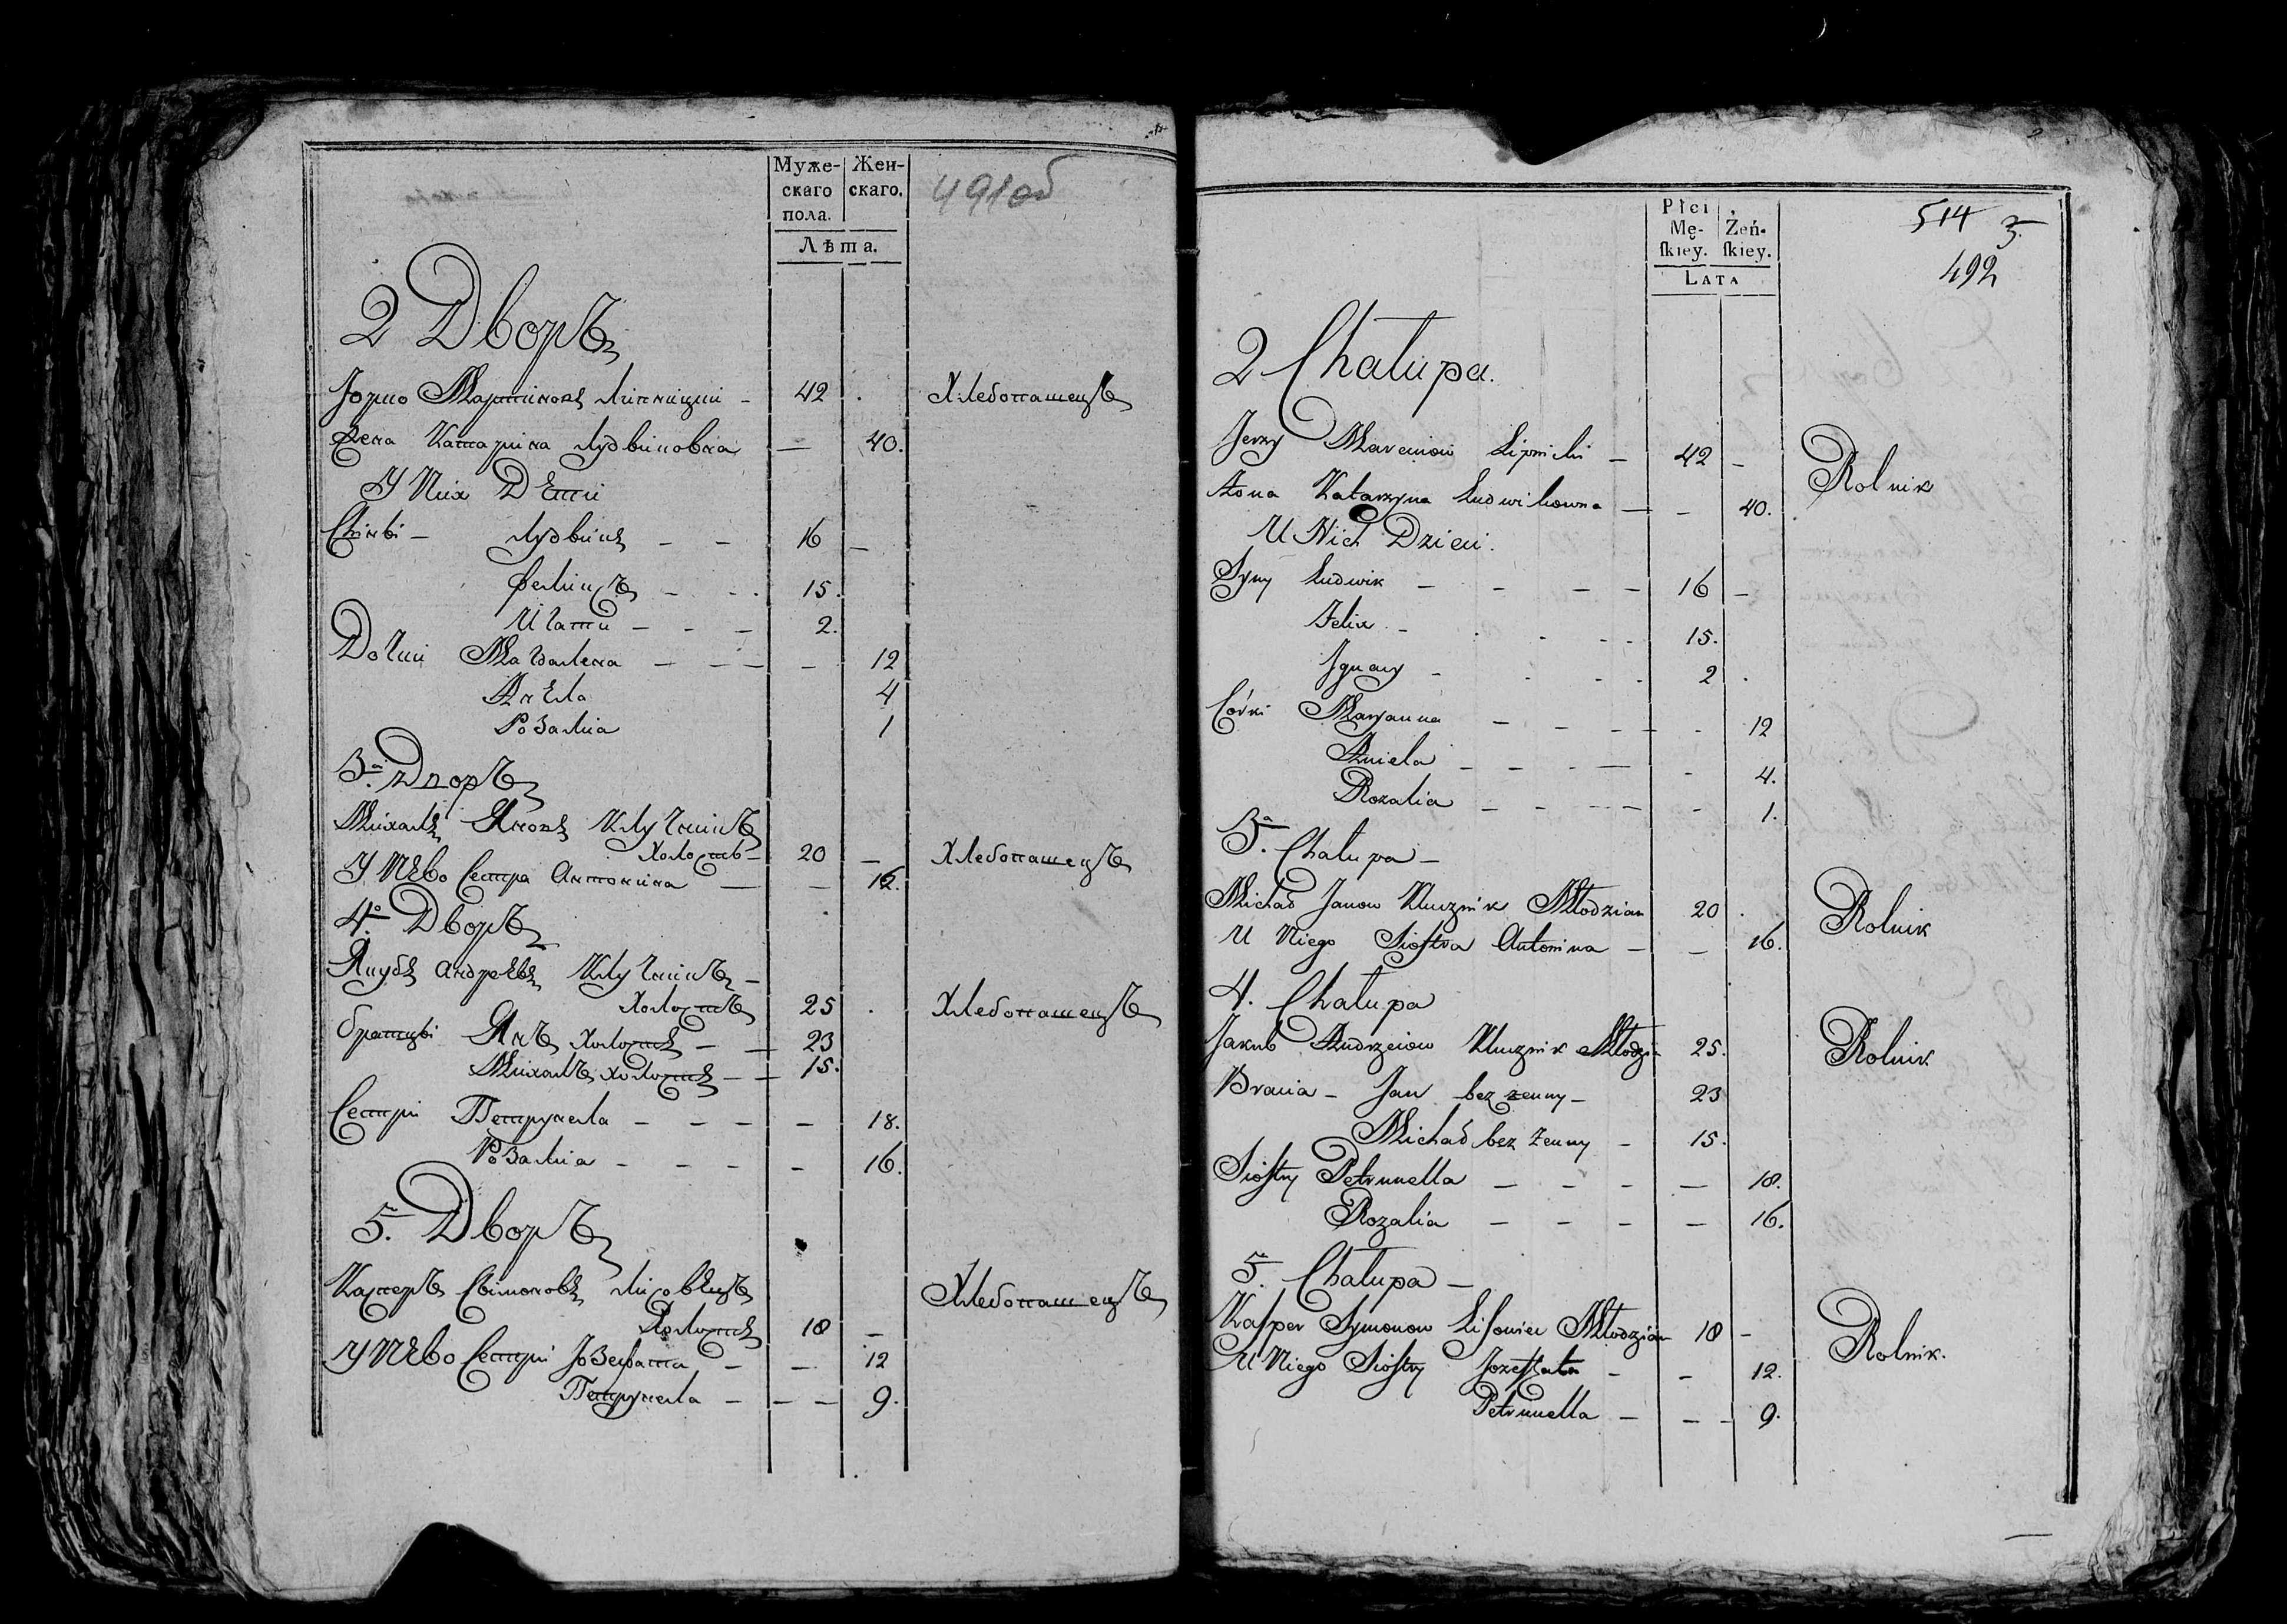 Муже-
скаго
пола.
Жен-
скаго.
Лѣта.
491об
2 Дворъ
Юрио Мартиновъ Липницкий - 42 . Хлебопашецъ
Жена Катарина Лудвиковна — 40.
У Них Дети
Сыны - Лудвикъ - - 16 —
Феликсъ - - . 15.
Игнати - - - 2.
Дочки Магдалена - - - - 12
Анеля 4
Розалиа 1
3. Дворъ
Михалъ Яновъ Ключникъ
Холость - 20 — Хлебопашецъ
У Него Сестра Антонина — — 16.
4. Дворъ
Якубъ Андреевъ Ключникъ -
Холостъ 25 . Хлебопашецъ
братцы Янъ Холостъ - — 23
Михалъ Холостъ - — 15.
Сестры Петрунела - - - - 18.
Розалиа - - - - 16.
5. Дворъ
Касперъ Сымоновъ Лисовецъ Хлебопашецъ
Холостъ 18 —
У Него Сестры Юзефата - — 12
Петрунела - - - 9.
Płci
Mę-
ſkiey.
Żeń-
ſkiey.
LATA
514 3.
492
2 Chałupa.
Jerzy Marcinow Lipnicki - 42 - Rolnik
Żona Katarzyna Ludwikowna — - 40.
U Nich Dzieci.
Syny Ludwik - - - - 16 -
Felix - . - - 15.
Jgnacy - . - - 2 .
Córki Maryanna - - - - - 12
Aniela - - - — - 4.
Rozalia - - - - - 1.
3. Chałupa -
Michał Janow Klucznik Młodzian 20 . Rolnik
U Niego Sioſtra Antonina - — 16.
4. Chałupa
Jakub Andrzeiow Klucznik Młodzi- 25. Rolnik
Bracia - Jan bez żenny - 23
Michał bez żenny - 15.
Sioſtry Petrunella - - - — 18.
Rozalia - - - — 16.
5. Chałupa -
Kaſper Symonow Liſowiec Młodzian 18 - Rolnik.
U Niego Sioſtry Jozeffata - - 12.
Petrunella - - - 9.